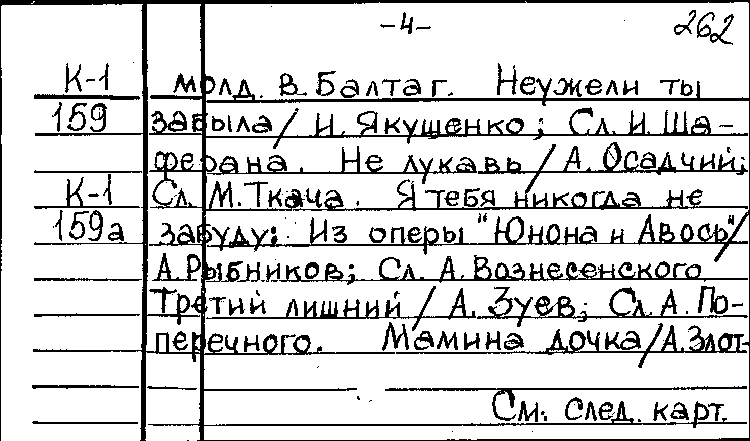 -4- 262
К-1 молд. В. Балтаг. Неужели ты
159 забыла / И. Якушенко; Сл. И. Ша-
ферана. Не лукавь / А. Осадчий;
К-1 Сл. М. Ткача. Я тебя никогда не
159а забуду: Из оперы "Юнона и Авось" /
А. Рыбников; Сл. А. Вознесенского
Третий лишний / А. Зуев; Сл. А. По-
перечного. Мамина дочка / А. Злот-
См. след. карт.